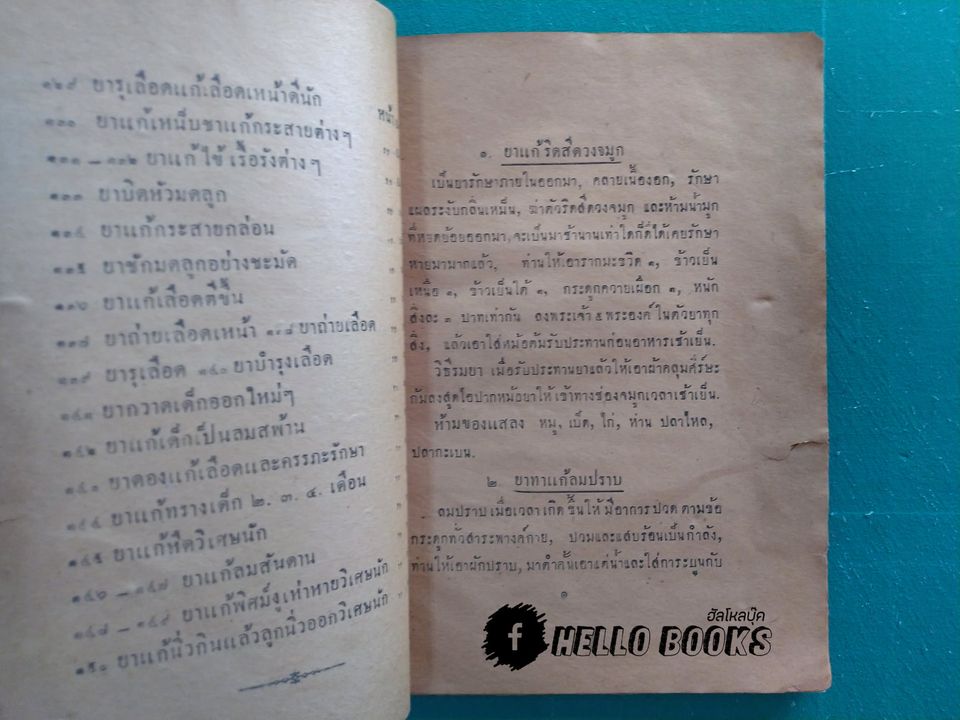 ๑๒๙ ยารุเลือดแก้เลือดเหน้าดีนัก
๑๓๐ ยาแก้เหน็บชาแก้กระสายต่างๆ
๑๓๑ – ๑๓๒ ยาแก้ไข้เรื้อรังต่างๆ
๑๓๓ ยาบิดหัวมดลูก
๑๓๔ ยาแก้กระสายกล่อน
๑๓๕ ยาชักมดลูกอย่างชะมัด
๑๓๖ ยาแก้เลือดตีขึ้น
๑๓๗ ยาถ่ายเลือดเหน้า ๑๓๘ ยาถ่ายเลือด
๑๓๙ ยารุเลือด ๑๔๐ ยาบำรุงเลือด
๑๔๑ ยากวาดเด็กออกใหม่ๆ
๑๔๒ ยาแก้เด็กเป็นลมสพ้าน
๑๔๓ ยาดองแก้เลือดและครรภะรักษา
๑๔๔ ยาแก้ทรางเด็ก ๒. ๓. ๔. เดือน
๑๔๕ ยาแก้หืดวิเศษนัก
๑๔๖ – ๑๔๗ ยาแก้ลมสันดาน
๑๔๘ – ๑๔๙ ยาแก้พิศม์งูเห่าหายวิเศษนัก
๑๕๐ ยาแก้นิ่วกินแล้วลูกนิ่วออกวิเศษนัก
หน้า
๑. ยาแก้ริดสีดวงจมูก
เป็นยารักษาภายในออกมา, คลายเนื้องอก, รักษา
แผลระงับกลิ่นเหม็น, ฆ่าตัวริดสีดวงจมูก และห้ามน้ำมูก
ที่หยดย้อยออกมา, จะเป็นมาช้านานเท่าใดก็ดีได้เคยรักษา
หายมามากแล้ว, ท่านให้เอารากมะขวิด ๑, ข้าวเย็น
เหนือ ๑, ข้าวเย็นใต้ ๑, กระดูกควายเผือก ๑, หนัก
สิ่งละ ๑ บาทเท่ากัน ลงพระเจ้า ๕ พระองค์ ในตัวยาทุก
สิ่ง, แล้วเอาใส่หม้อต้มรับประทานก่อนอาหารเช้าเย็น.
วิธีรมยา เมื่อรับประทานยาแล้วให้เอาผ้าคลุมศีร์ษะ
ก้มลงสูดไอปากหม้อยาให้เข้าทางช่องจมูกเวลาเช้าเย็น.
ห้ามของแสลง หมู, เบ็ด, ไก่, ห่าน ปลาไหล,
ปลากะเบน.
๒. ยาทาแก้ลมปราบ
ลมปราบ เมื่อเวลาเกิดขึ้นให้มีอาการปวดตามข้อ
กระดูกทั่วสาระพางค์กาย, บวมและแสบร้อนเป็นกำลัง,
ท่านให้เอาผักปราบ, มาตำคั้นเอาแต่น้ำและใส่การะบูนกับ
๑
ฮัลโหลบุ๊ค
f HELLO BOOKS